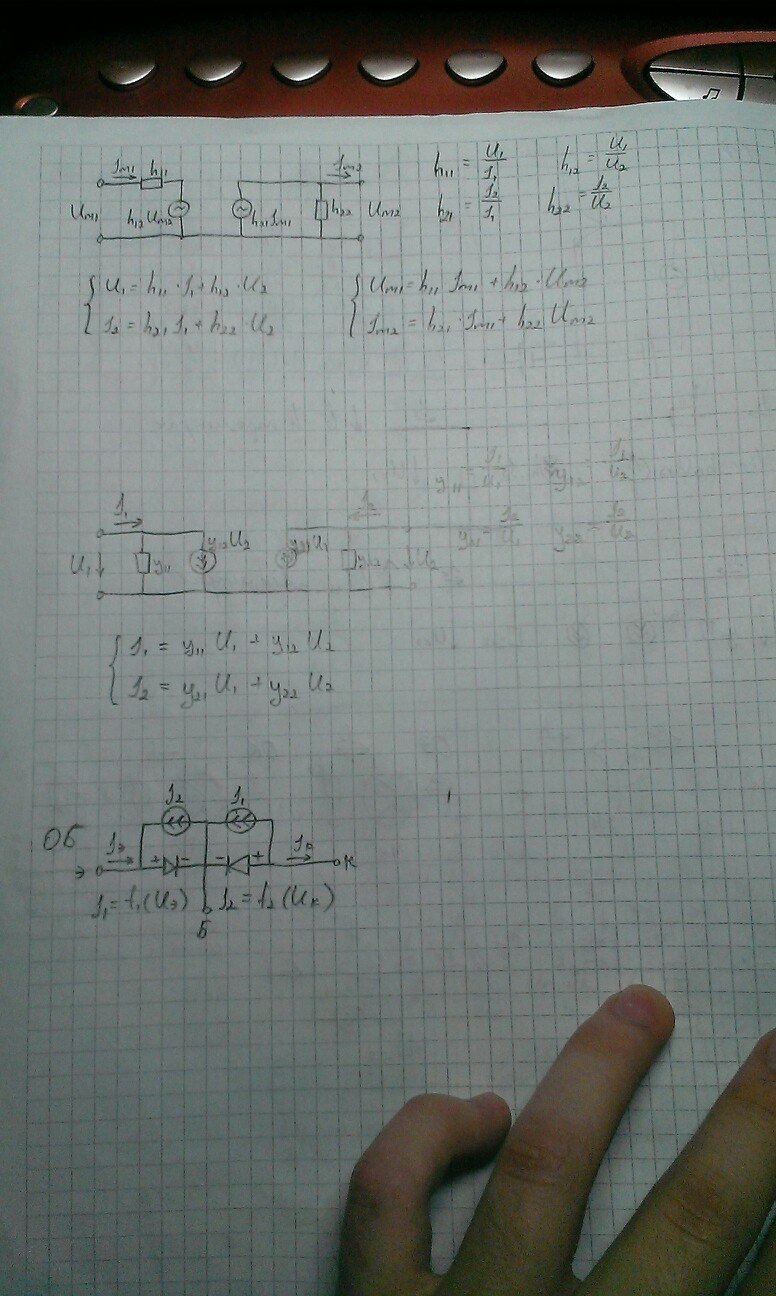 Im1 h11 Im2
Um1 h12 Um2 h21 Im1 h22 Um2
h11 = U1/I1 h12 = U1/U2
h21 = I2/I1 h22 = I2/U2
U1 = h11 · I1 + h12 · U2
I2 = h21 I1 + h22 · U2
Um1 = h11 Im1 + h12 · Um2
Im2 = h21 · Im1 + h22 Um2
y11 = I1/U1 y12 = I1/U2
y21 = I2/U1 y22 = I2/U2
I1 I2
U1 y11 y12 U2 y21 U1 y22 U2
I1 = y11 U1 + y12 U2
I2 = y21 U1 + y22 U2
I2 I1
ОБ
Iэ
э + - - + к
I1 = f1 (Uэ) I2 = f2 (Uк)
Б